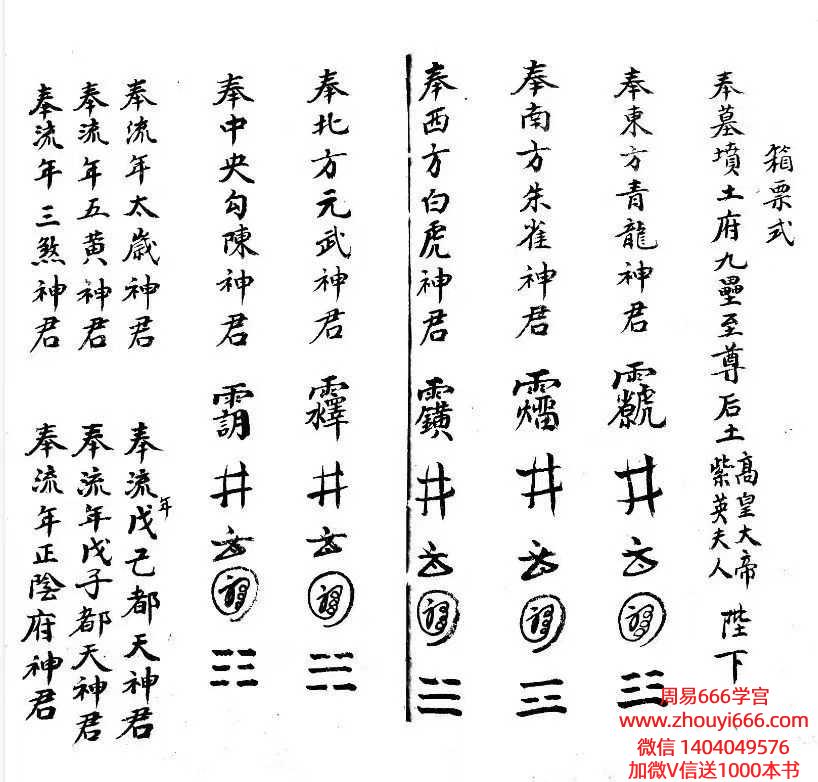 箱票式
奉墓墳土府九壘至尊后土高皇大帝紫英夫人陛下
奉東方青龍神君
奉南方朱雀神君
奉西方白虎神君
奉北方元武神君
奉中央勾陳神君
奉流年太歲神君
奉流年五黄神君
奉流年三煞神君
奉流年戊己都天神君
奉流年戊子都天神君
奉流年正陰府神君
周易666学宫
www.zhouyi666.com
微信 1404049576
加微V信送1000本书